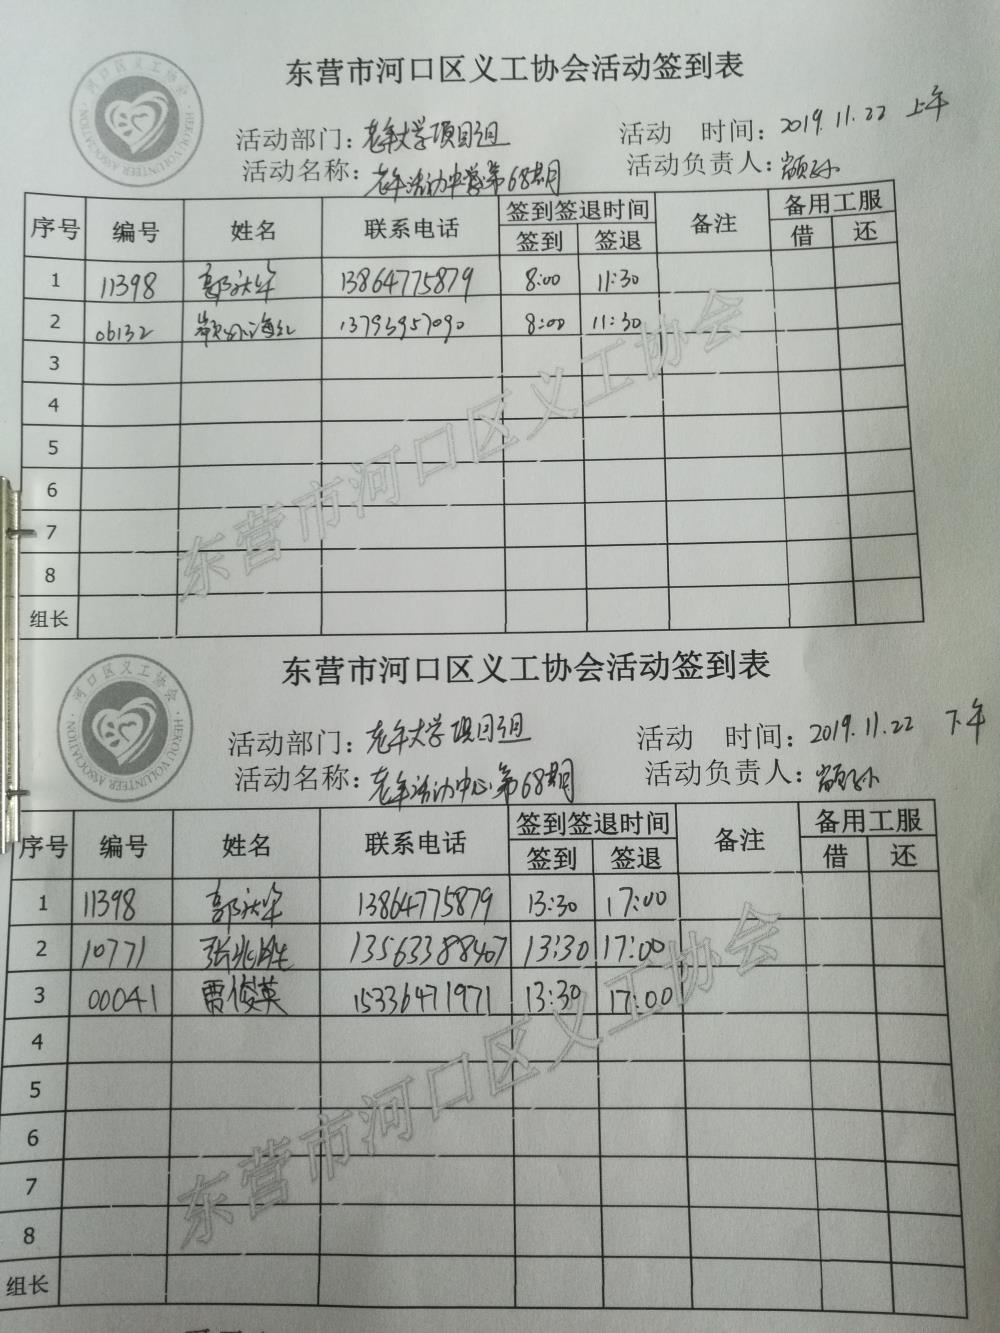 东营市河口区义工协会活动签到表
活动部门：老年大学项目组 活动 时间：2019.11.22 上午
活动名称：老年活动中心第68期 活动负责人：
序号 编号 姓名 联系电话 签到签退时间 备注 备用工服
签到 签退 借 还
1 11398 郭 13864775879 8:00 11:30
2 06132 海红 13793957090 8:00 11:30
3
4
5
6
7
8
组长
东营市河口区义工协会
东营市河口区义工协会活动签到表
活动部门：老年大学项目组 活动 时间：2019.11.22 下午
活动名称：老年活动中心第68期 活动负责人：
序号 编号 姓名 联系电话 签到签退时间 备注 备用工服
签到 签退 借 还
1 11398 郭 13864775879 13:30 17:00
2 10771 张兆胜 13563388407 13:30 17:00
3 00041 贾俊英 15336471971 13:30 17:00
4
5
6
7
8
组长
东营市河口区义工协会
河口区义工协会
HEKOU VOLUNTEER ASSOCIATION
河口区义工协会
HEKOU VOLUNTEER ASSOCIATION